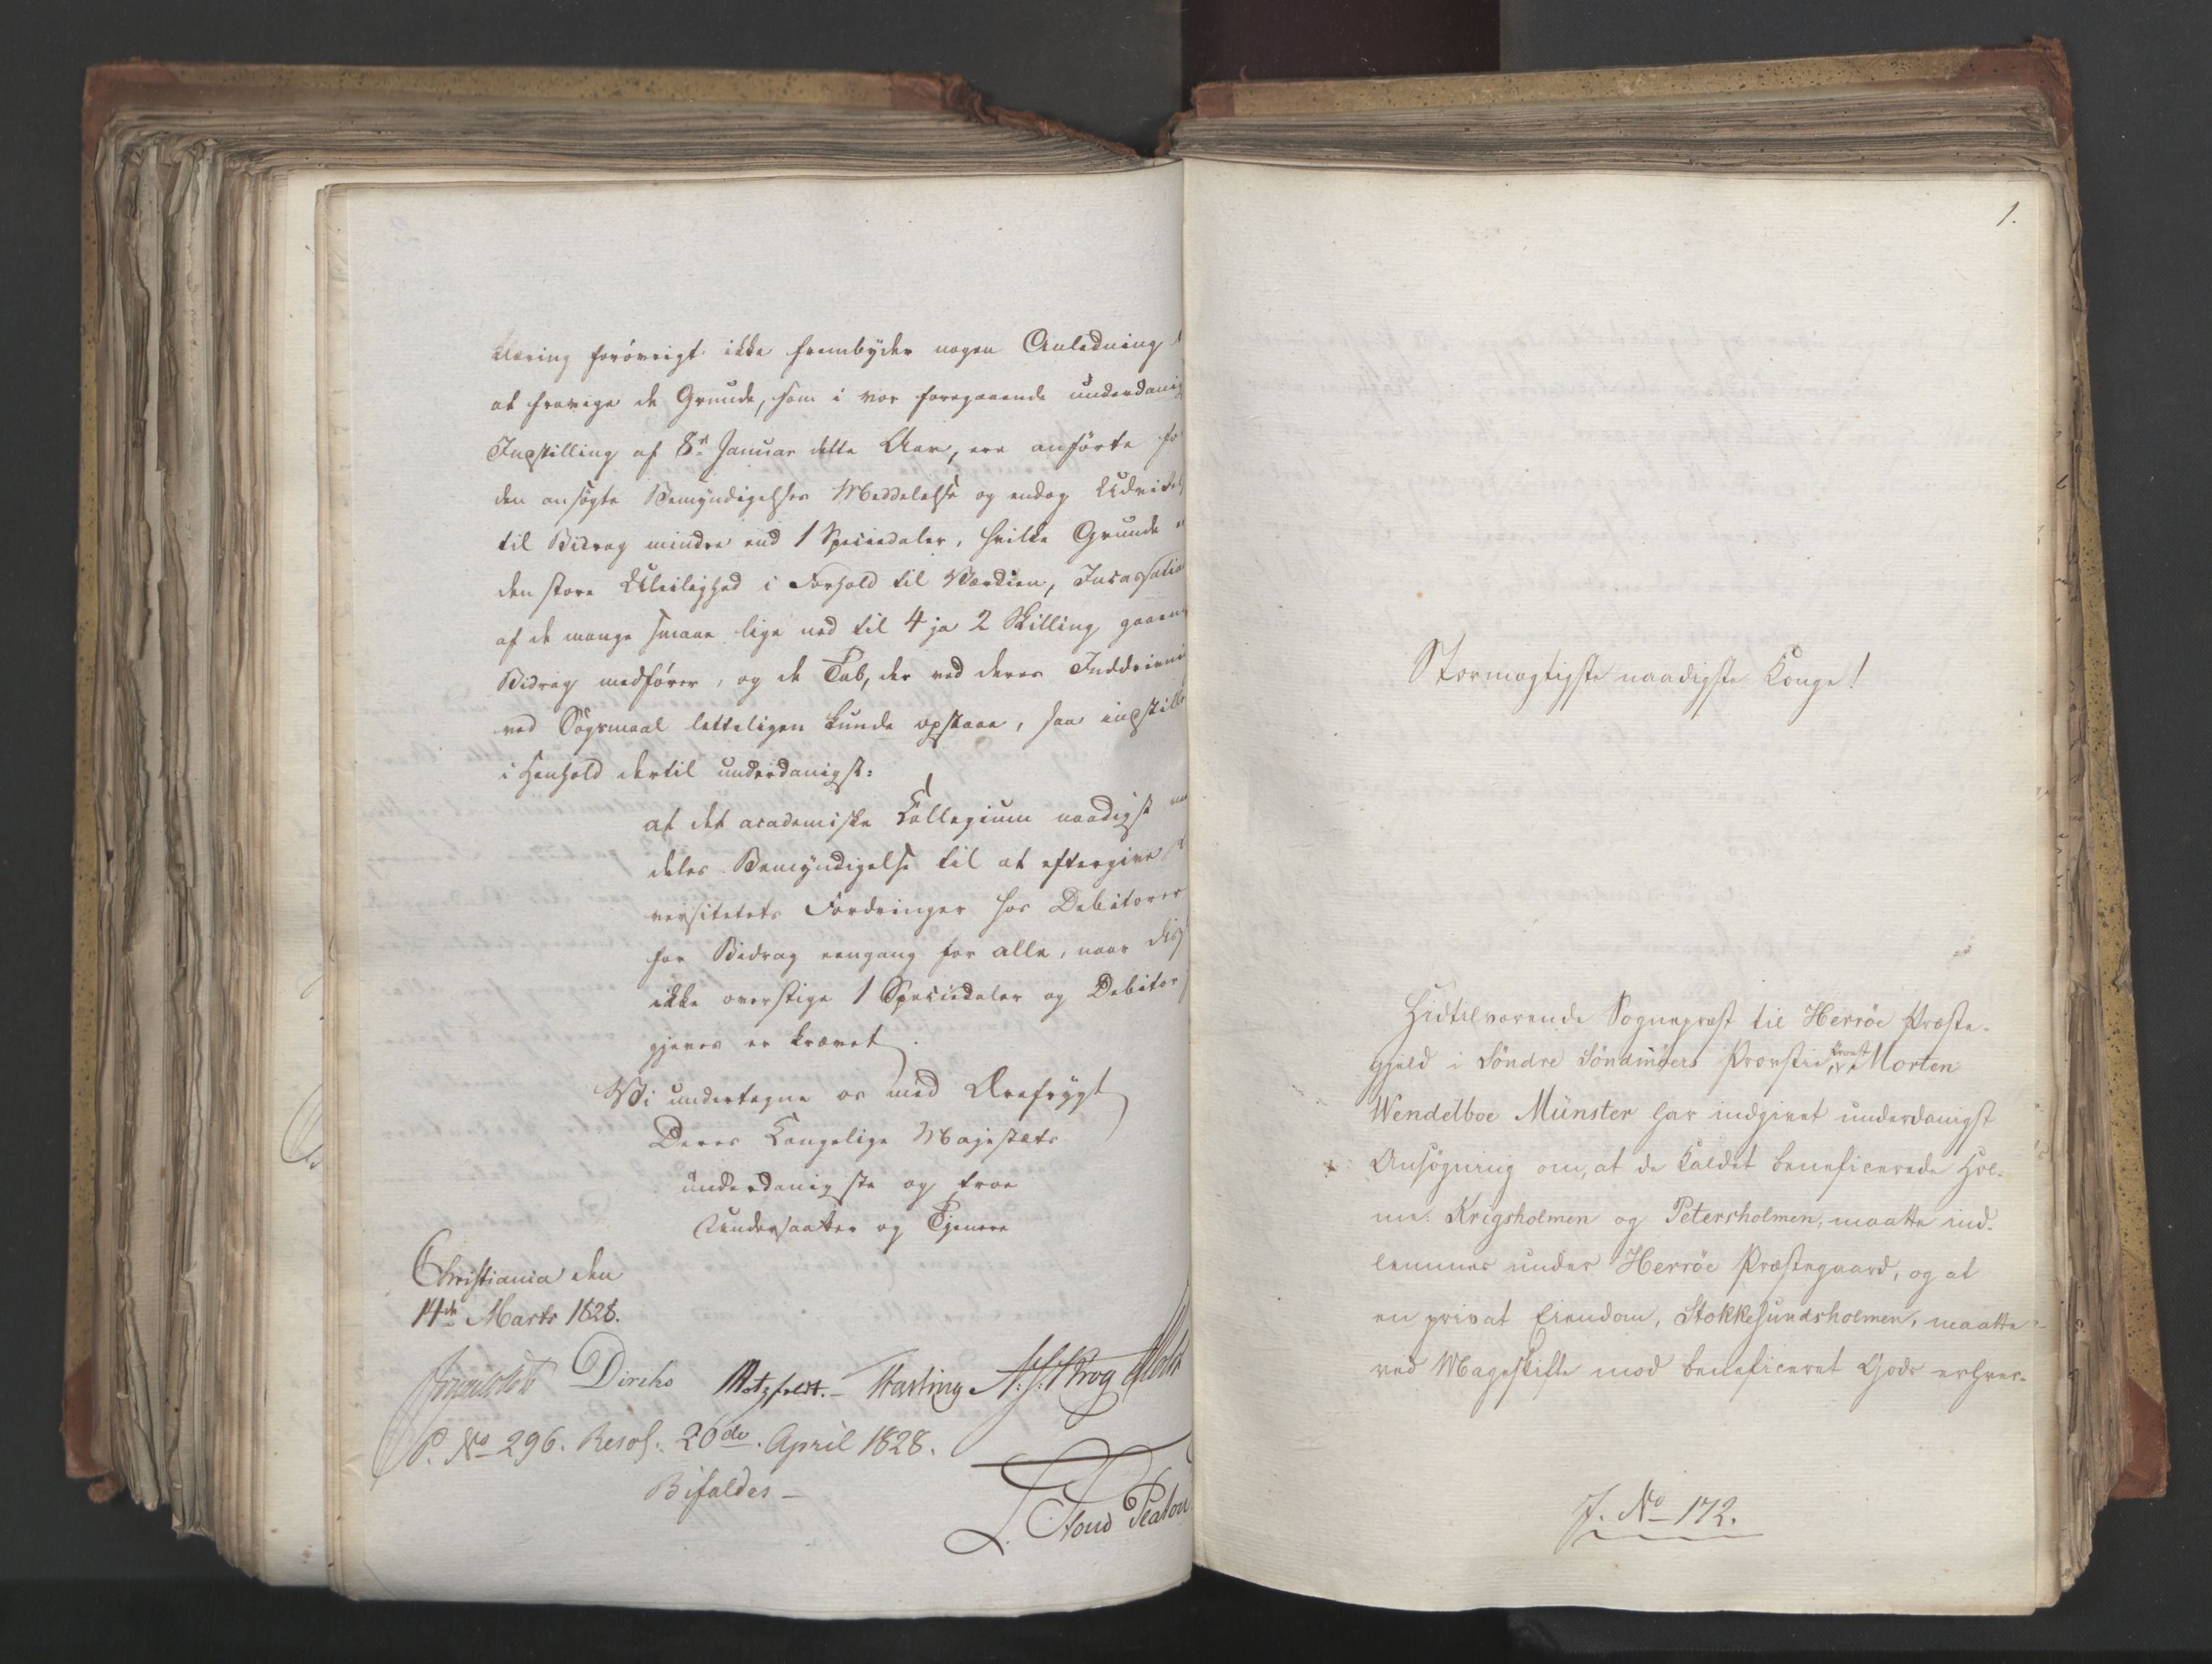 klæring forövrigt ikke frembyder nogen Anledning
at fravige de Grunde, som i vor foregaaende underdanig
Indstilling af 8de Januar dette Aar, ere anförte fo
den ansögte Bemyndigelses Meddelelse og endog Udvidel
til Bidrag mindre end 1 Speciedaler, hvilke Grunde
den store Uleilighed i Forhold til Værdien, Incassatio
af de mange smaae lige ned til 4 ja 2 Skilling gaaen
Bidrag medfører, og de Tab, der ved deres Inddrivni
ved Sögsmaal letteligen kunde opstaae, saa indstill
i Henhold dertil underdanigst:
at det academiske Collegium naadigst
deles Bemyndigelse til at eftergive
versitetets Fordringer hos Debitorer
for Bidrag eengang for alle, naar diss
ikke overstige 1 Speciedaler og Debitor
gjæves er krævet.
Vi undertegne os med Ærefrygt
Deres Kongelige Majestæts
underdanigste og troe
Undersaatter og Tjenere
Christiania den
14de Marts 1828.
Diriks Motzfeldt. Fasting A. S. Krog
P. No 296. Resol. 20de April 1828.
Bifaldes
L. Stoud Platou
1.
Stormægtigste naadigste Konge!
Hidtilværende Sognepræst til Herröe Præste-
gjeld i Söndre Söndmöers Provstie, Provst Morten
Wendelboe Münster har indgivet underdanigst
Ansögning om, at de Kaldet beneficerede Hol-
me: Krigsholmen og Petersholmen, maatte ind-
lemmes under Herröe Præstegaard, og at
en privat Eiendom, Stokkesundsholmen, maatte
ved Mageskifte mod beneficeret Gods erhver-
J. No 172.